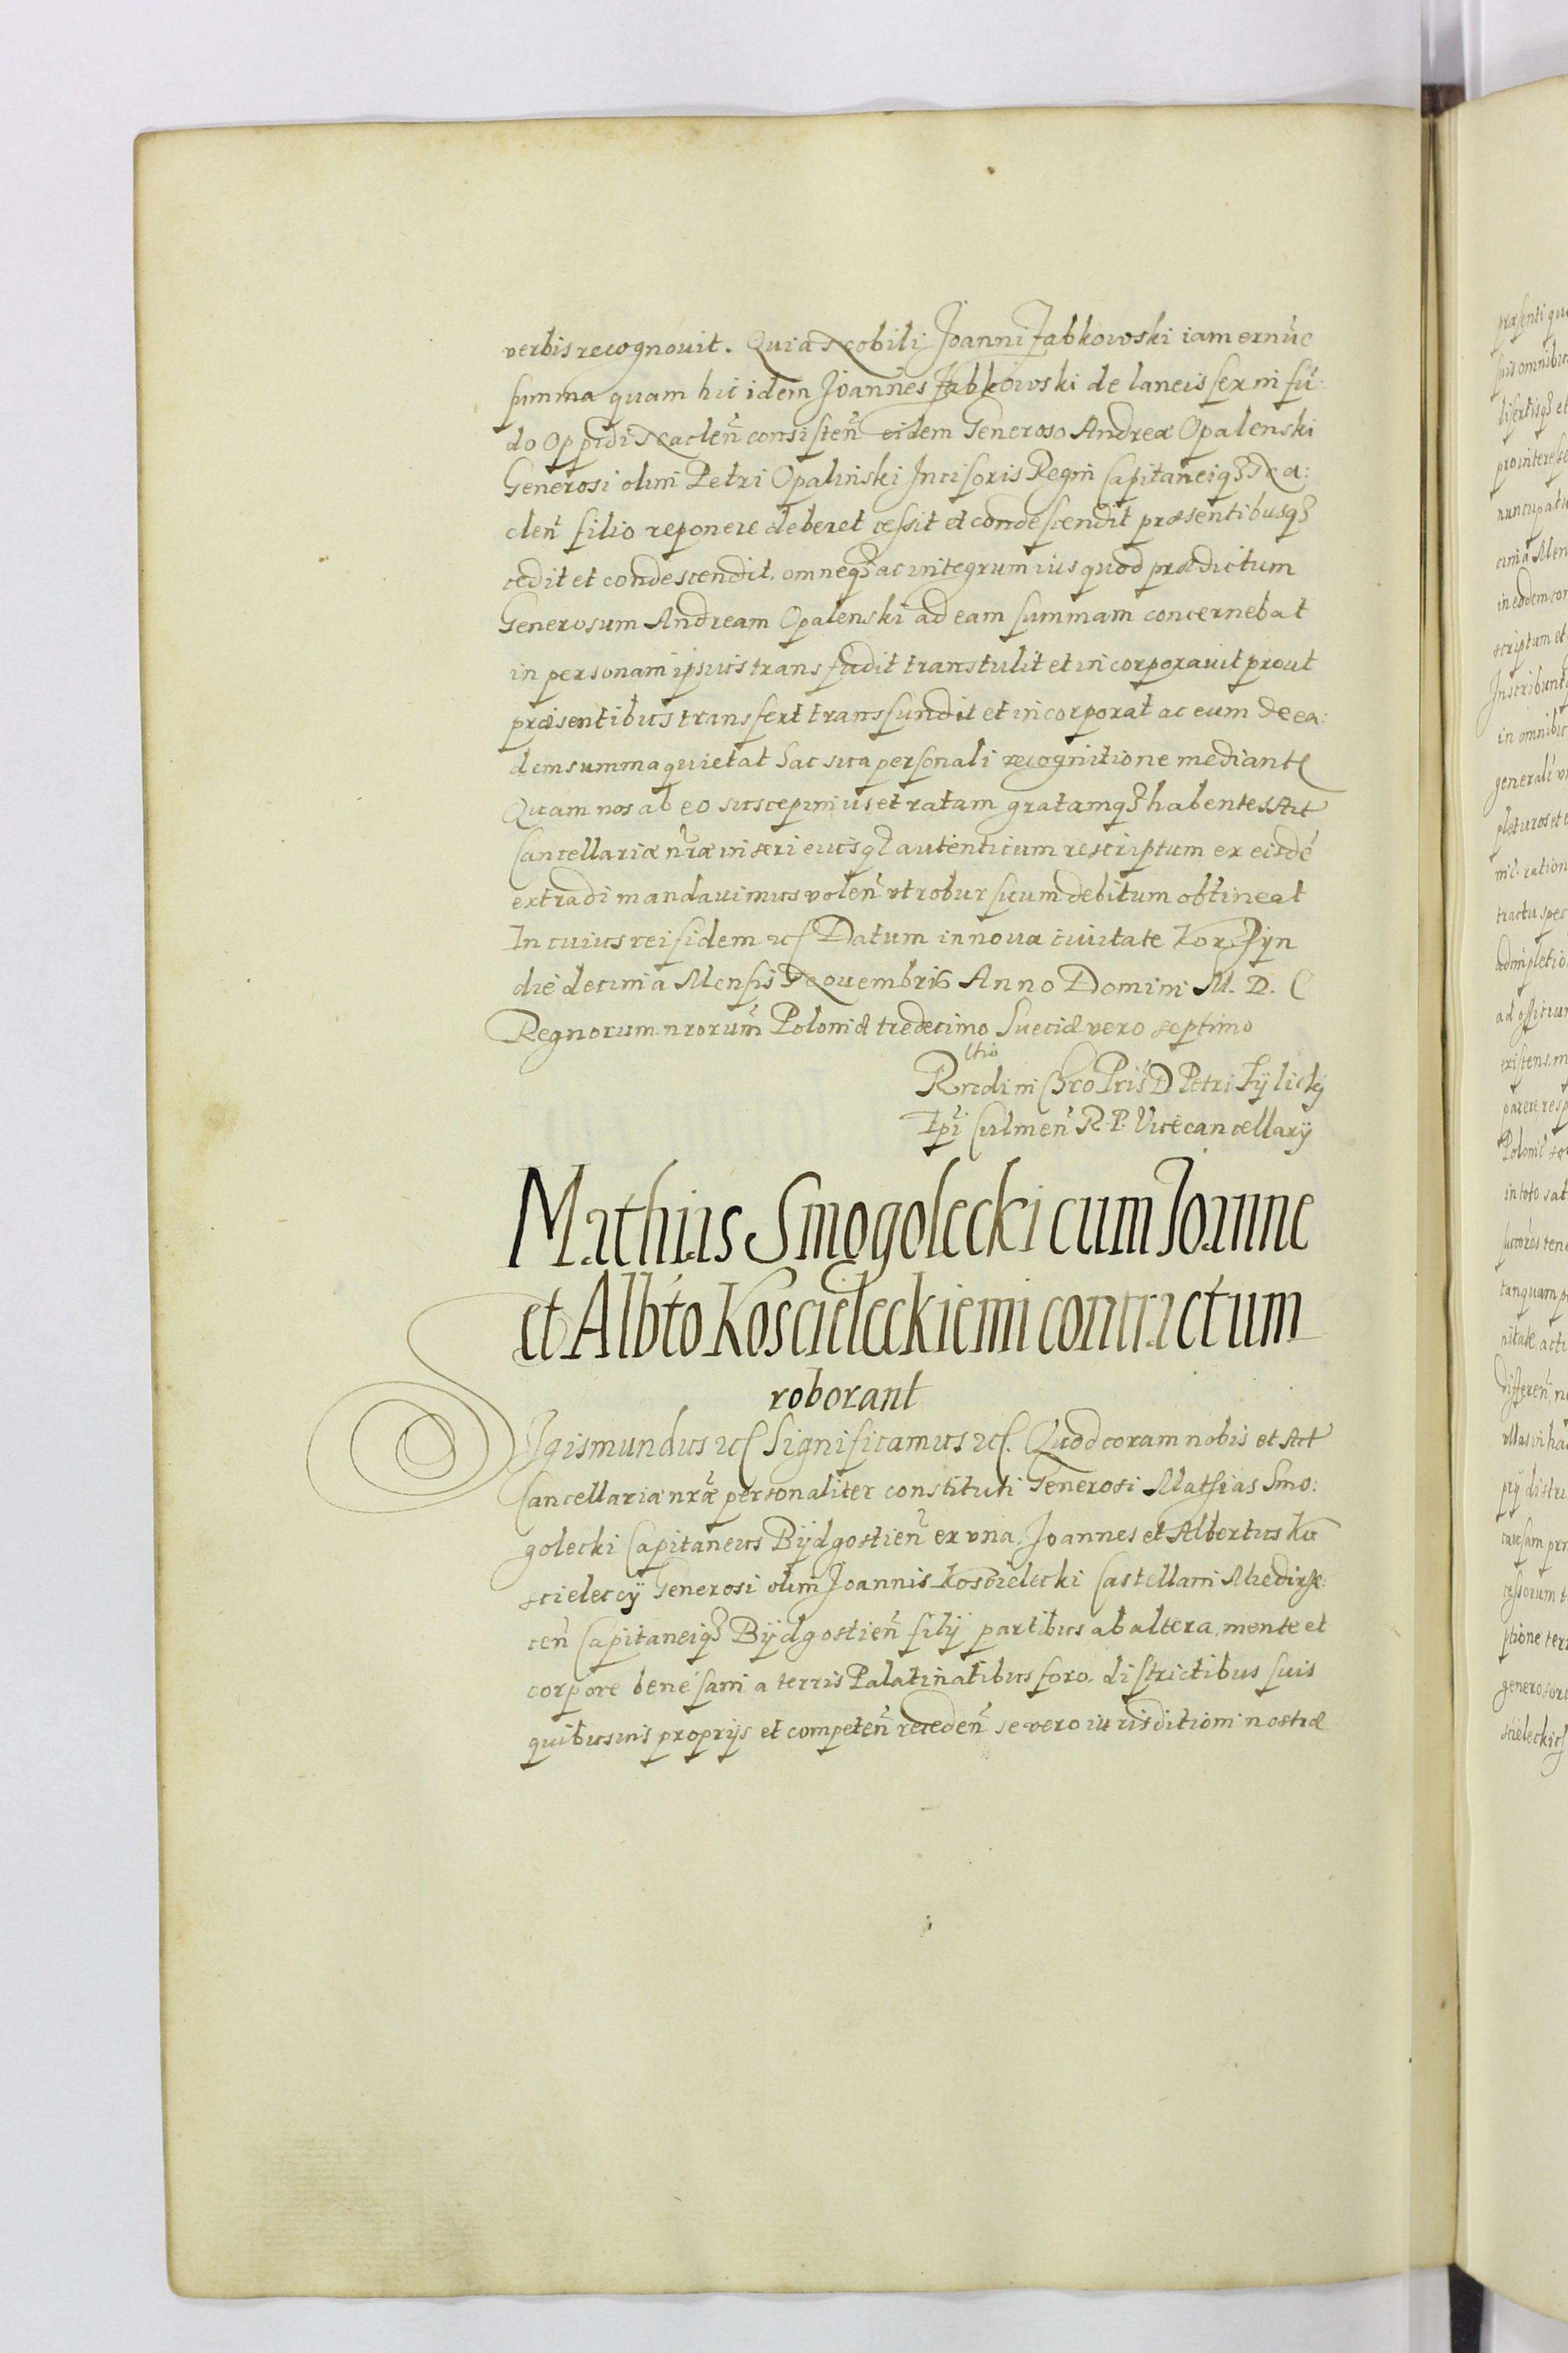 verbis recognouit. Quia Nobili Joanni Jabkowski iam ex nuc
summa quam hic idem Joannes Jabkowski de laneis sex in fu:
do Oppidi Naclen̄ consisten̄ eidem Generoso Andreæ Opalenski
Generosi olim Petri Opalinski Incisoris Regni Capitaneiq₃ Na:
clen̄ filio reponere deberet cessit et condescendit præsentibusq₃
cedit et condescendit. omneq₃ ac integrum ius quod prædictum
Generosum Andream Opalenski ad eam summam concernebat
in personam ipsius transfudit transtulit et incorporauit prout
præsentibus transfert transfundit et incorporat ac eum de ea:
dem summa quietat hac sua personali recognitione mediante
Quam nos ab eo suscepimus et ratam gratamq₃ habentes Act
Cancellariæ nr̄æ inseri eiusq₃ autenticum rescriptum ex eisdē
extradi mandauimus volen̄ vt robur suum debitum obtineat
In cuius rei fidem etc Datum in noua ciuitate Korczyn
die decima Mensis Nouembris Anno Domini M. D. C
Regnorum nrorum̄ Poloniæ tredecimo Sueciæ vero septimo
ltio
Rn̄di in Chr̄o Pris̄ D Petri Tylicky
Ep̄i Culmen̄ R. P. Vicecancellary
Mathias Smogolecki cum Joanne
et Albto Koscieleckiemi contractum
roborant
Sigismundus etc Significamus etc. Quod coram nobis et Act
Cancellariæ nr̄æ personaliter constituti Generosi Mathias Smo:
golecki Capitaneus Bydgostien̄ ex vna. Joannes et Albertus Ko
scieleccy Generosi olim Joannis Koscielecki Castellani Miedirze:
cen̄ Capitaneiq₃ Bydgostien̄ filij partibus ab altera, mente et
corpore bene sani a terris Palatinatibus foro. districtibus suis
quibusuis proprijs et competen̄ receden̄ se vero iurisditioni nostræ